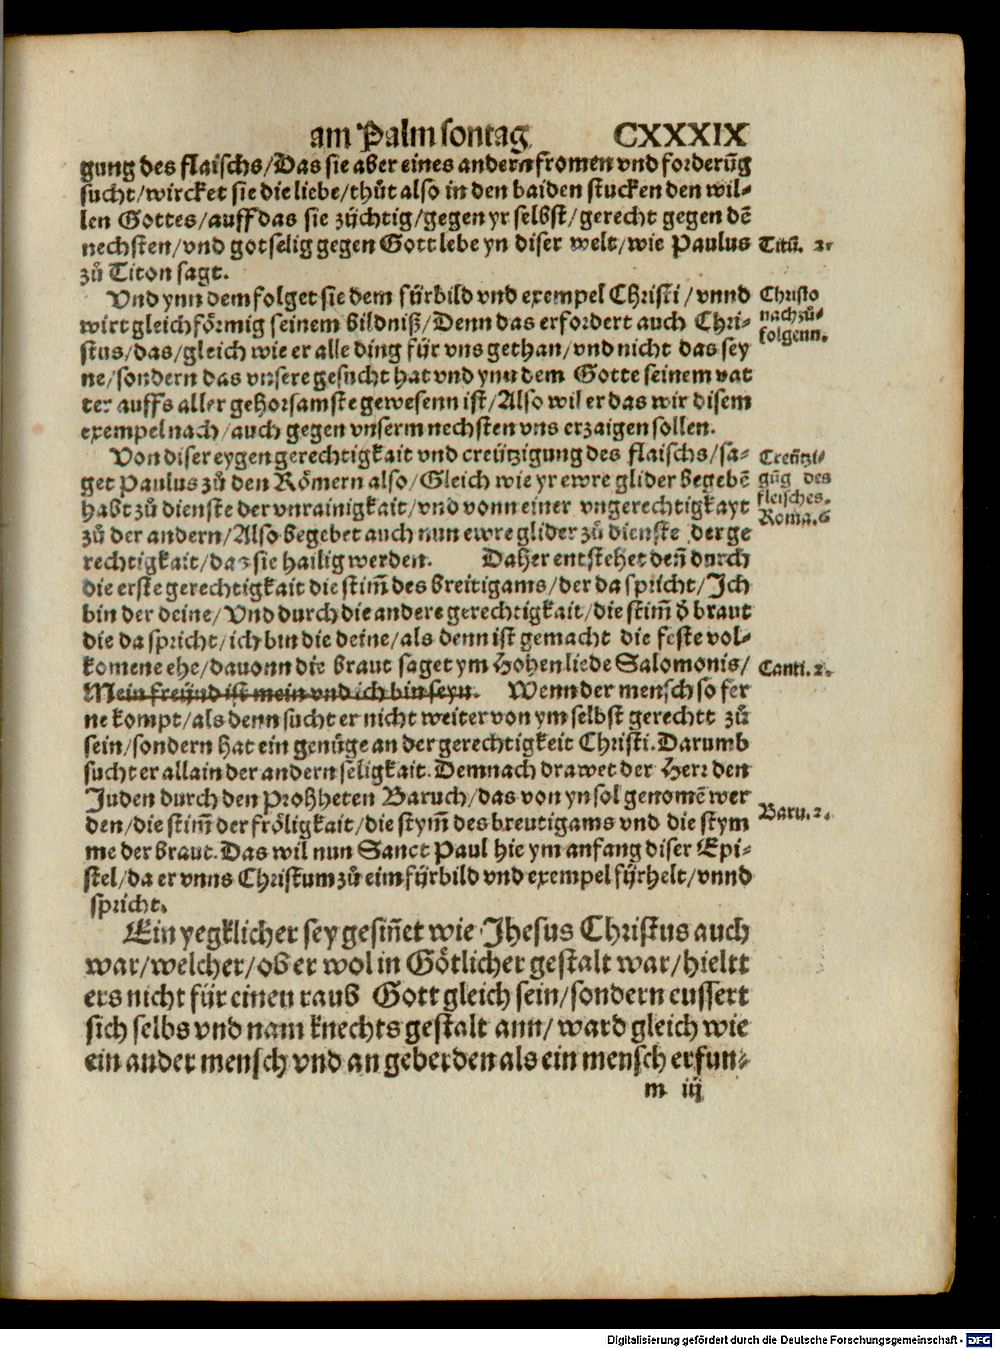 am Palmsontag CXXXIX
gung des flaischs/Das sie aber eines andern fromen vnd forderūg
sucht/wircket sie die liebe/thůt also in den baiden stucken den wil⸗
len Gottes/auff das sie zychtig/gegen yr selbst/gerecht gegen dē
nechsten/vnd gotselig gegen Gott lebe yn diser welt/wie Paulus
Titū. 2.
zů Titon sagt.
Vnd ynn dem folget sie dem fyrbild vnd exempel Christi/vnnd
Christo
wirt gleichförmig seinem bildniß/Denn das erfordert auch Chri⸗
nachzů⸗
stus/das/gleich wie er alle ding fyr vns gethan/vnd nicht das sey
folgenn.
ne/sondern das vnsere gesucht hat vnd ynn dem Gotte seinem vat
ter auffs aller gehorsamste gewesenn ist/Also wil er das wir disem
exempel nach/auch gegen vnserm nechsten vns erzaigen sollen.
Von diser eygen gerechtigkait vnd creützigung des flaischs/sa⸗
Creützi⸗
get Paulus zů den Römern also/Gleich wie yr ewre glider begebē
gūg des
habt zů dienste der vnrainigkait/vnd vonn einer vngerechtigkayt
fleisches.
Roma. 6
zů der andern/Also begebet auch nun ewre glider zů dienste der ge
rechtigkait/das sie hailig werden. Daher entstehet deñ durch
die erste gerechtigkait die stim̄ des breitigams/der da spricht/Ich
bin der deine/Vnd durch die andere gerechtigkait/die stim̄ ð braut
die da spricht/ich bin die deine/als denn ist gemacht die feste vol⸗
komene ehe/dauonn die braut saget ym Hohenliede Salomonis/
Canti. 2.
Mein freünd ist mein vnd ich bin seyn. Wenn der mensch so fer
ne kompt/als denn sucht er nicht weiter von ym selbst gerechtt zů
sein/sondern hat ein genüge an der gerechtigkeit Christi. Darumb
sucht er allain der andern seligkait. Demnach drawet der Herr den
Juden durch den Prohheten Baruch/das von yn sol genomē wer
Baru. 2.
den/die stim̄ der fröligkait/die stym̄ des breutigams vnd die stym
me der braut. Das wil nun Sanct Paul hie ym anfang diser Epi⸗
stel/da er vnns Christum zů eim fyrbild vnd exempel fyrhelt/vnnd
spricht.
Ein yegklicher sey gesiñet wie Jhesus Christus auch
war/welcher/ob er wol in Götlicher gestalt war/hieltt
ers nicht für einen raub Gott gleich sein/sondern eussert
sich selbs vnd nam knechts gestalt ann/ward gleich wie
ein ander mensch vnd an geberden als ein mensch erfun⸗
m iij
Digitalisierung gefördert durch die Deutsche Forschungsgemeinschaft - DFG